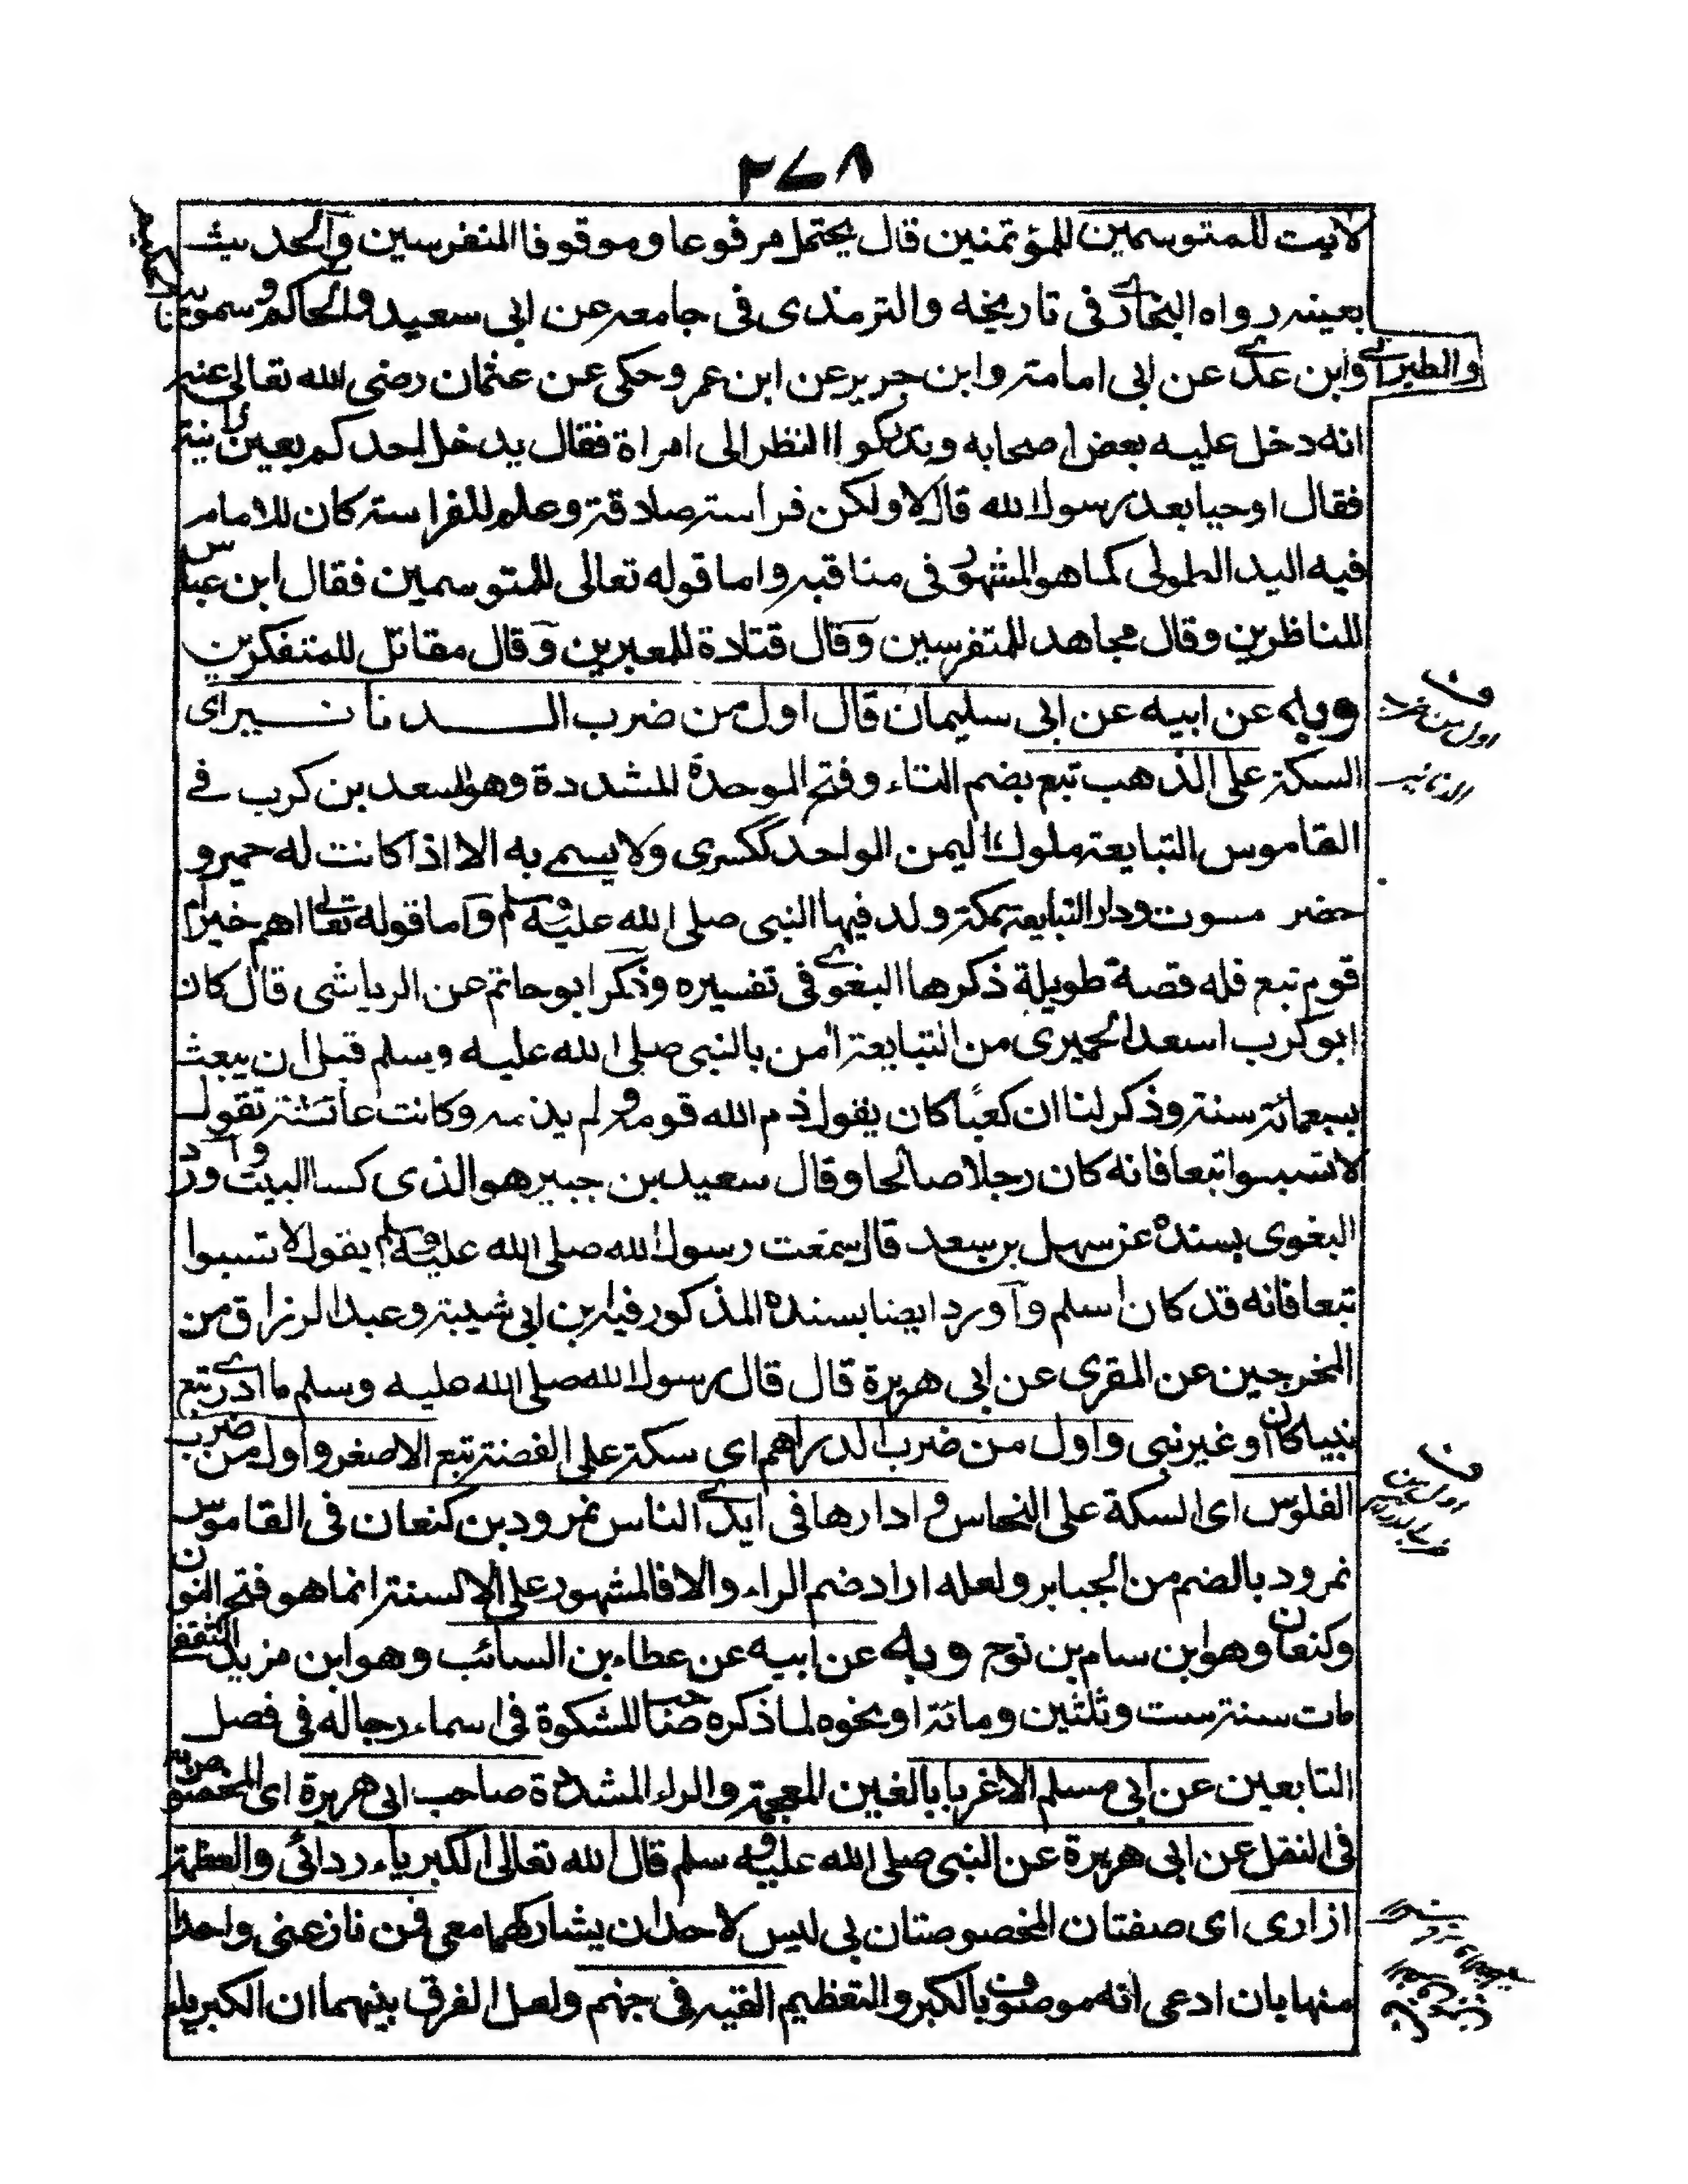 ٢٧٨
لايت للمتوسمين للمؤتمنين قال يحتمل مرفوعا وموقوفا المتفرسين والحديث
بعينه رواه البخاري في تاريخه والترمذي في جامعه عن ابي سعيد والحاكم وسمويه
والطبراني وابن عدي عن ابي امامة وابن جرير عن ابن عمر وحكى عن عثمان رضي الله تعالى عنه
انه دخل عليه بعض اصحابه النظر الى امراة فقال يدخل احدكم بعين زانية
فقال اوحيا بعد رسول الله قال لا ولكن فراسة صادقة وعلم للفراسة كان للامام
فيه اليد الطولى كما هو المشهور في مناقبه واما قوله تعالى للمتوسمين فقال ابن عباس
للناظرين وقال مجاهد للمتفرسين وقال قتادة للمعبرين وقال مقاتل للمتفكرين
وبه عن ابيه عن ابي سليمان قال اول من ضرب الدنانير اى
السكة على الذهب تبع بضم التاء وفتح الموحدة المشددة وهو اسعد بن كرب في
القاموس التبايعة ملوك اليمن الواحد ككسرى ولا يسمى به الا اذا كانت له حمير و
حضر موت ودار التبايعة بمكة ولد فيها النبي صلى الله عليه وسلم واما قوله تعالى اهم خير ام
قوم تبع فله قصة طويلة ذكرها البغوي في تفسيره وذكر ابو حاتم عن الرياشي قال كان
ابو كرب اسعد الحميري من التبايعة امن بالنبي صلى الله عليه وسلم قبل ان يبعث
بسبعمائة سنة وذكر لنا ان كعبا كان يقول ذم الله قومه ولم يذمه وكانت عائشة تقول
لا تسبوا تبعا فانه كان رجلا صالحا وقال سعيد بن جبير هو الذي كسا البيت واورد
البغوى بسنده عن سهل بن سعد قال سمعت رسول الله صلى الله عليه وسلم يقول لا تسبوا
تبعا فانه قد كان اسلم واورد ايضا بسنده المذكور فيه ابن ابي شيبة وعبد الرزاق من
المخرجين عن المقرى عن ابي هريرة قال قال رسول الله صلى الله عليه وسلم ما ادري تبع
نبيا كان او غير نبي واول من ضرب الدراهم اى سكة على الفضة تبع الاصغر واول من ضرب
الفلوس اى السكة على النحاس وادارها في ايدي الناس نمرود بن كنعان في القاموس
نمرود بالضم من الجبابر ولعله اراد ضم الراء والا فالمشهور على الالسنة انما هو فتح النون
وكنعان وهو ابن سام بن نوح وبه عن ابيه عن عطاء بن السائب وهو ابن مزيد الثقفي
مات سنة ست وثلثين ومائة او نحوه لما ذكره صاحب المشكوة في اسماء رجاله في فصل
التابعين عن ابي مسلم الاغر بالغين المعجمة والراء المشددة صاحب ابي هريرة اى المخصوص
في النقل عن ابي هريرة عن النبي صلى الله عليه وسلم قال الله تعالى الكبرياء ردائي والعظمة
ازاري اى صفتان المخصوصتان بي ليس لاحد ان يشاركهما معي فمن نازعني واحدا
منها بان ادعى انه موصوف بالكبر والتعظيم القيه في جهنم ولعل الفرق بينهما ان الكبرياء
اول من ضرب
الدنانير
اول من